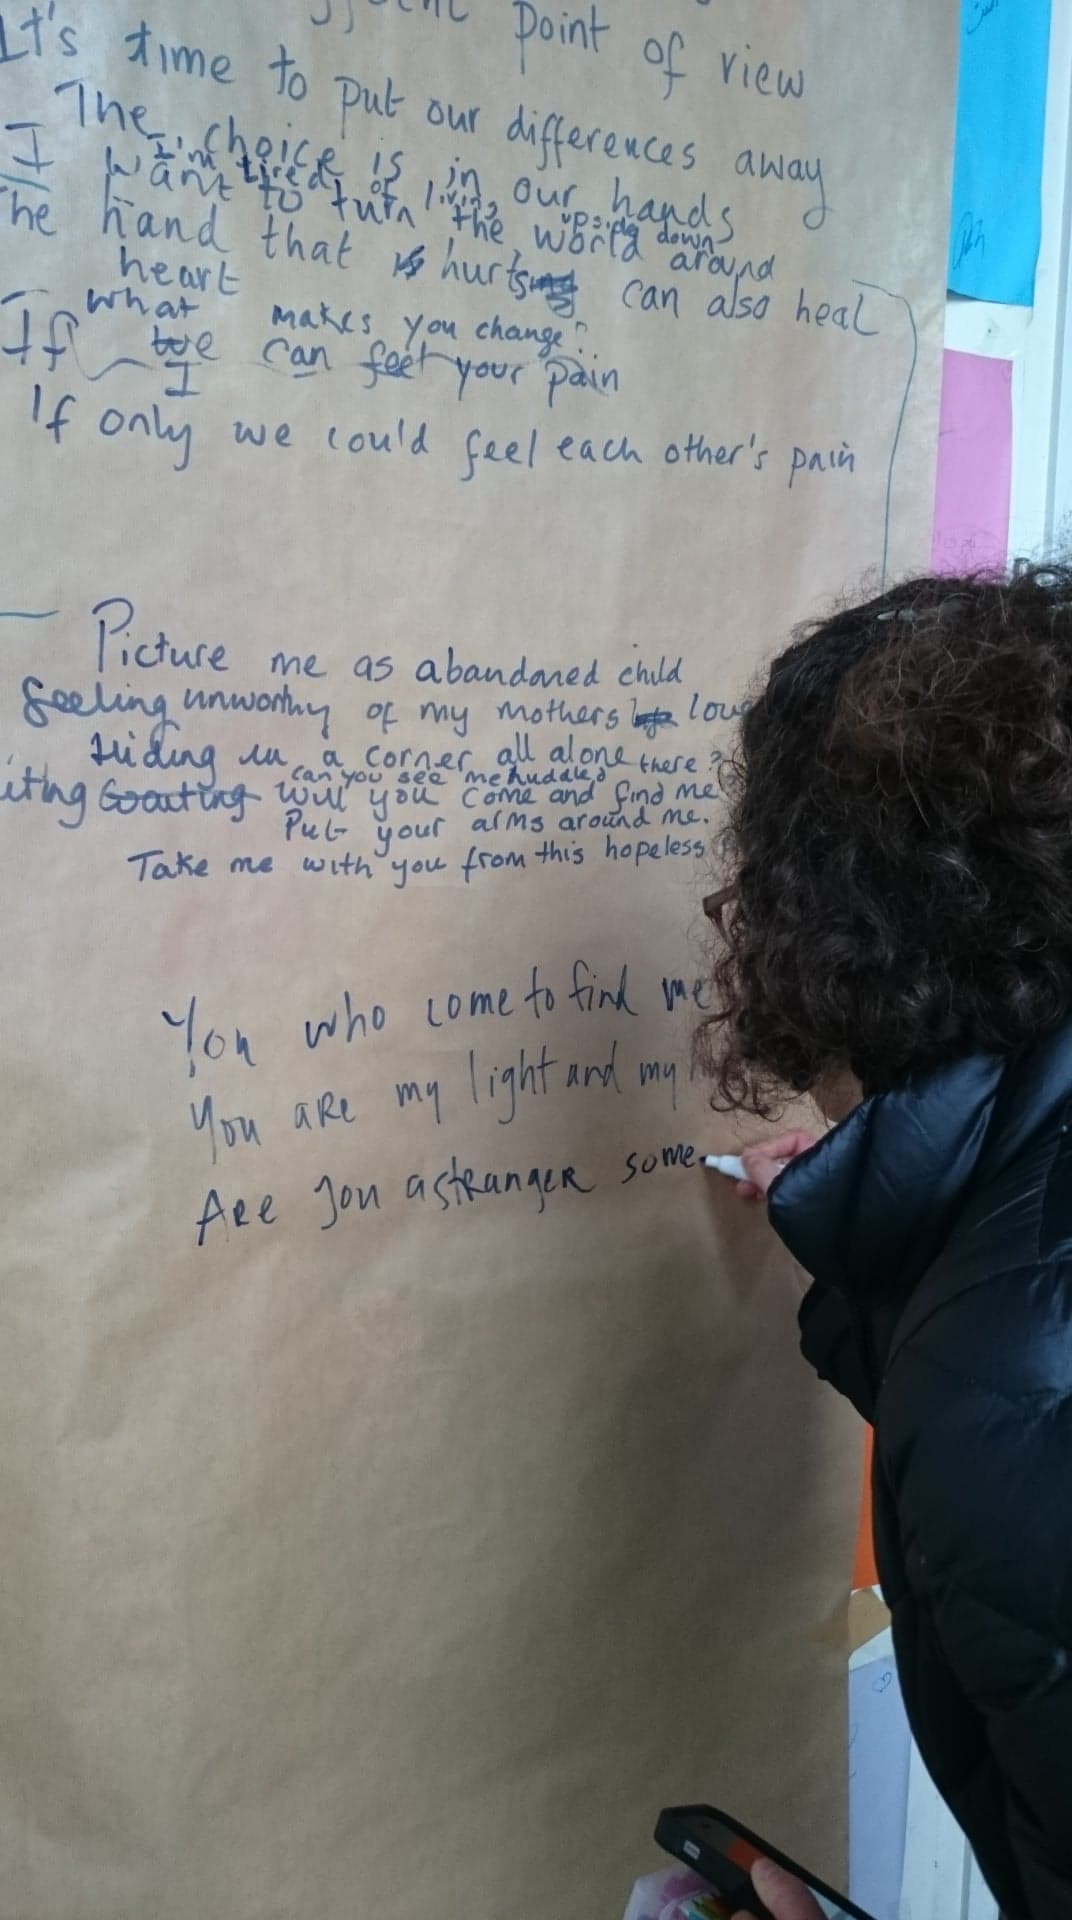 point of view
It's time to put our differences away
The choice is in our hands
I'm tired of living upside down
I want to turn the world around
The hand that hurts can also heal
heart
what makes you change?
If we can feel your pain
I
If only we could feel each other's pain
Picture me as abandoned child
feeling unworthy of my mothers love
Hiding in a corner all alone
can you see me huddled there?
Will you come and find me
Put your arms around me.
Take me with you from this hopeless
You who come to find me
You are my light and my
Are you a stranger some